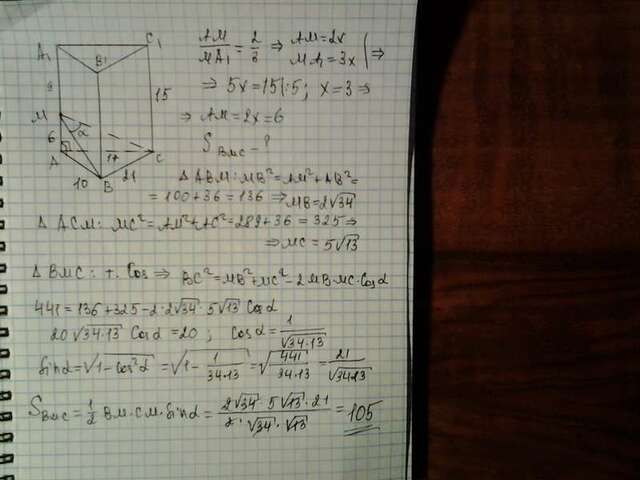 A₁ C₁ B₁ 9 15 M α 6 A 17 C 10 21 B
AM/MA₁ = 2/3 ⇒ AM=2x MA₁=3x ⇒
⇒ 5x=15|:5; x=3 ⇒
⇒ AM=2x=6
S BMC - ?
Δ ABM: MB²=AM²+AB²=
= 100+36=136 ⇒ MB=2√34
Δ ACM: MC²=AM²+AC²=289+36=325 ⇒
⇒ MC=5√13
Δ BMC: т. Cos ⇒ BC²=MB²+MC²-2MB·MC·Cosα
441=136+325-2·2√34·5√13 Cosα
20√34·13 Cosα=20; Cosα=1/√34·13
Sinα=√1-Cos²α=√1-1/34·13=√441/34·13=21/√34·13
S BMC=1/2 BM·CM·Sinα=2√34·5√13·21/2·√34·√13=105